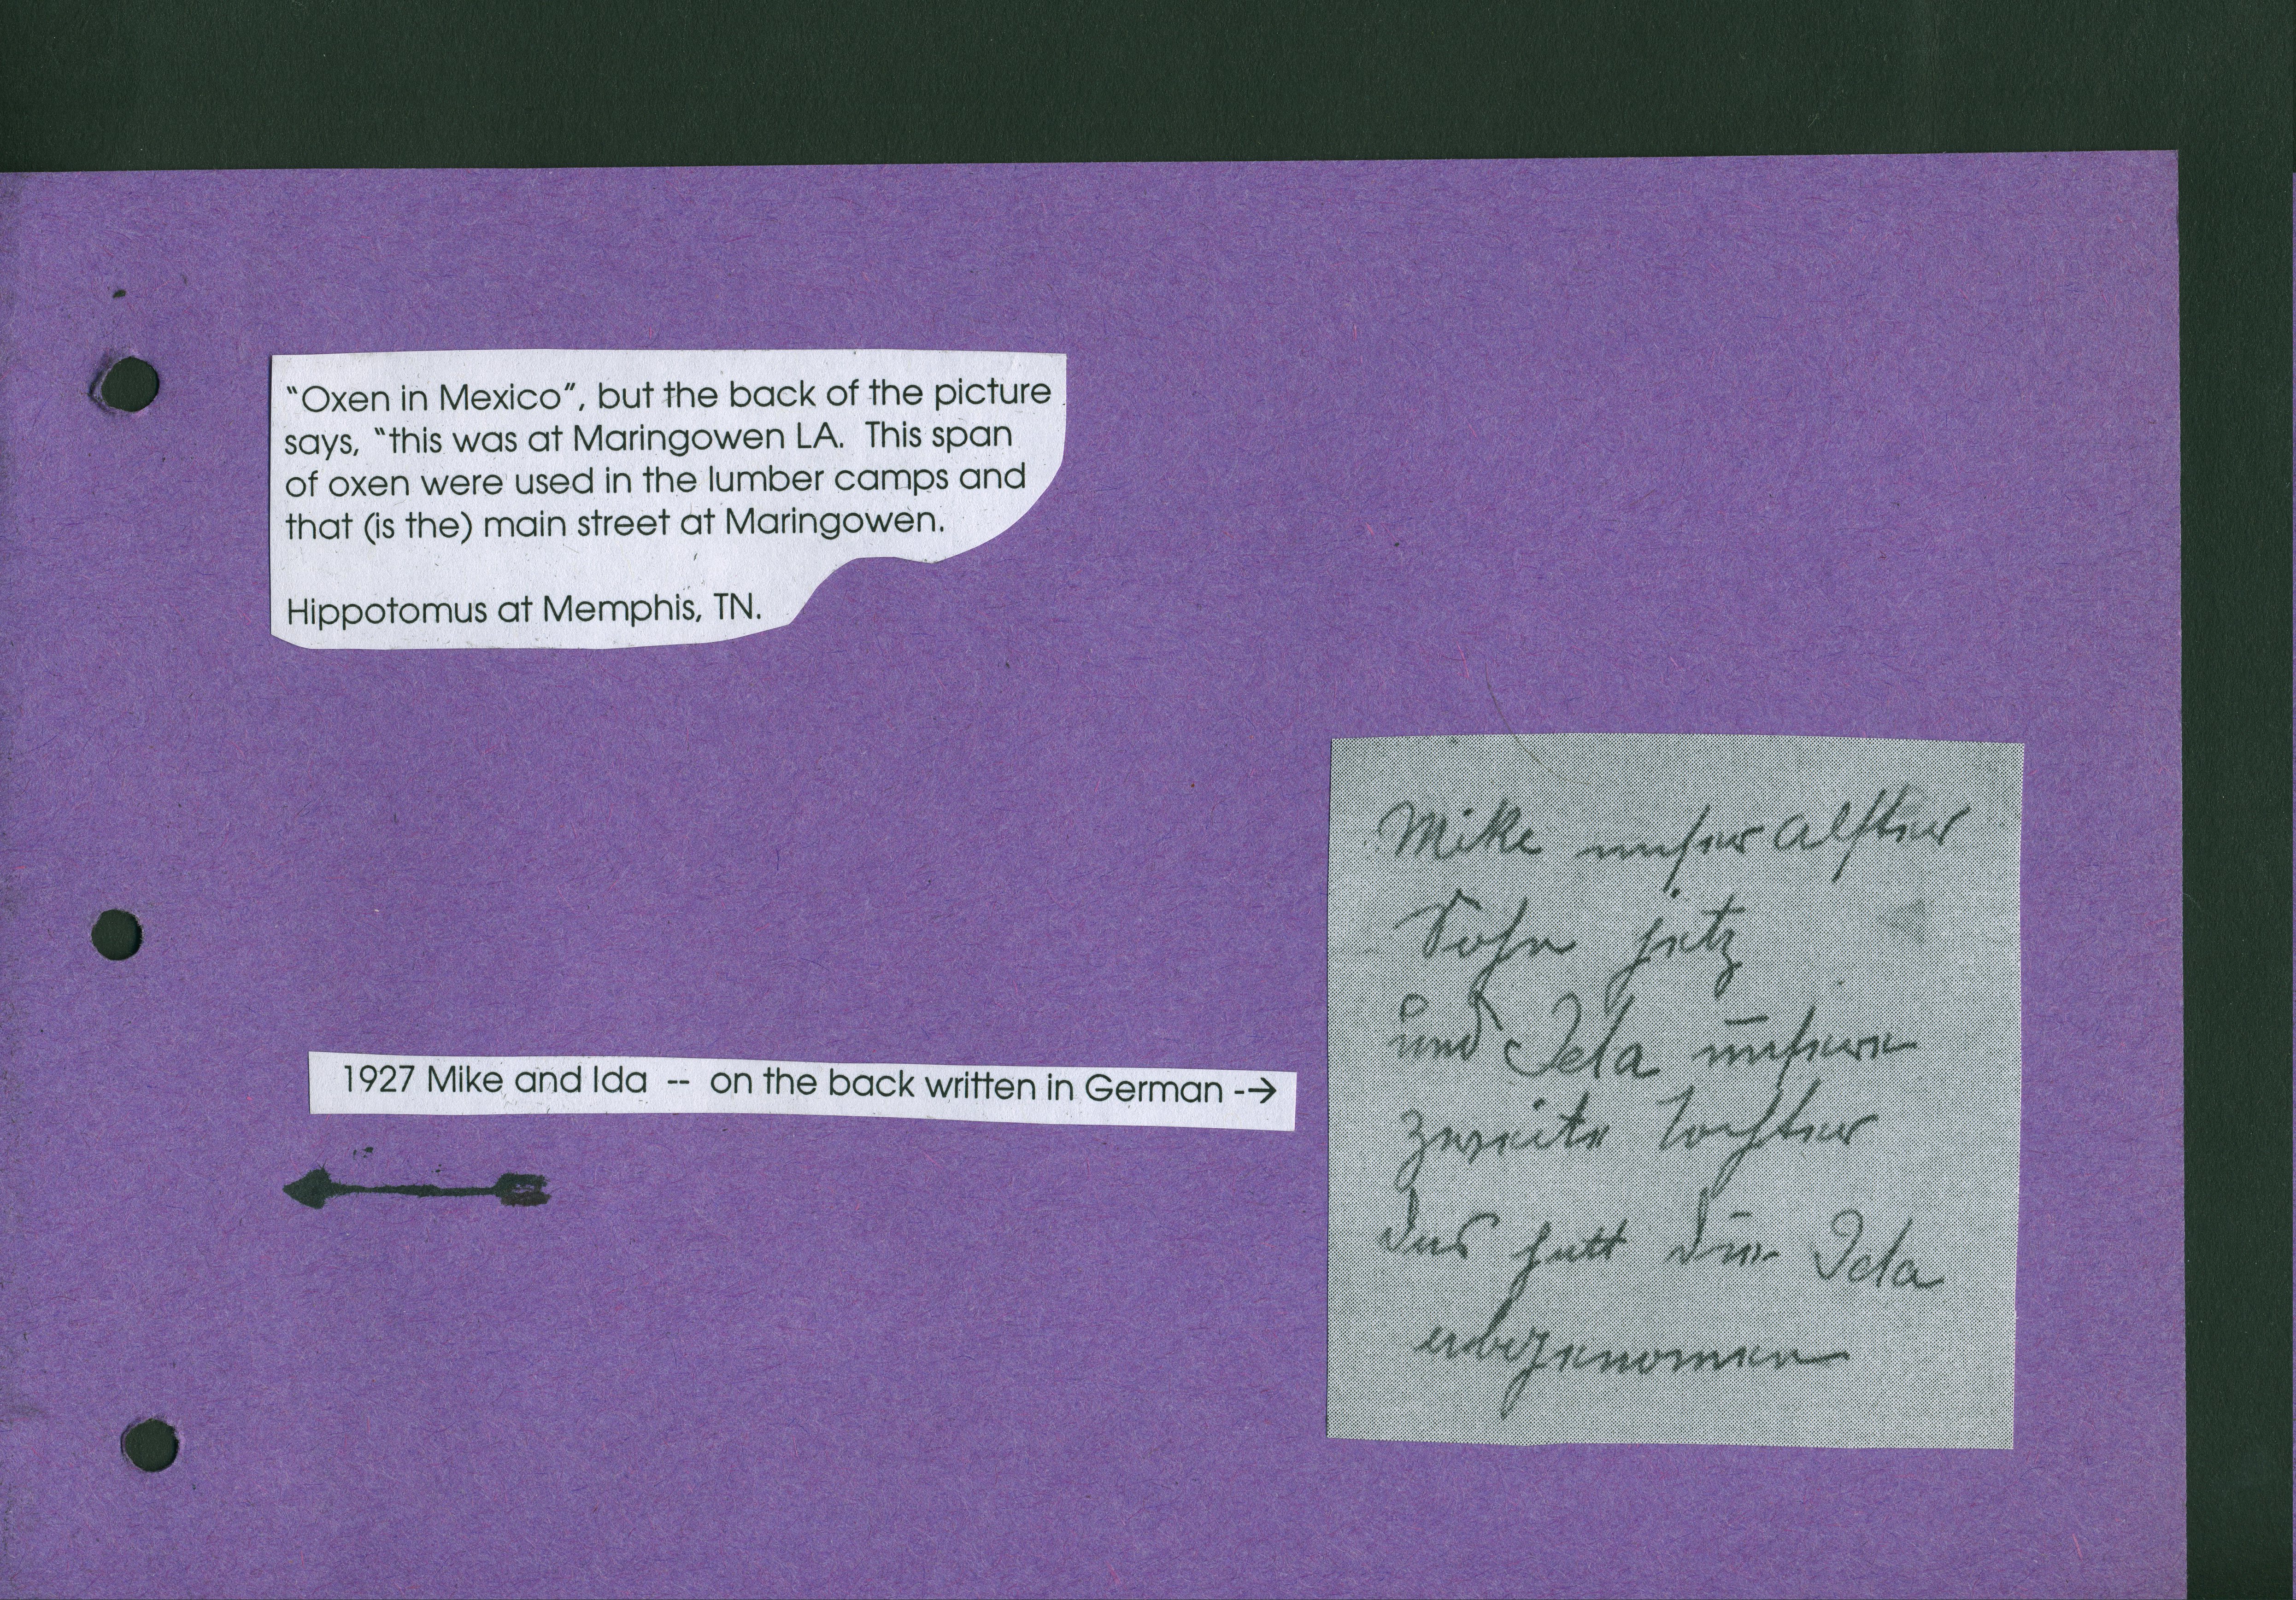 “Oxen in Mexico”, but the back of the picture
says, “this was at Maringowen LA. This span
of oxen were used in the lumber camps and
that (is the) main street at Maringowen.
Hippotomus at Memphis, TN.
1927 Mike and Ida -- on the back written in German -→
Mike unser Alster
Sohn jetz
und Ida unsere
zweite Tochter
das hatt die Ida